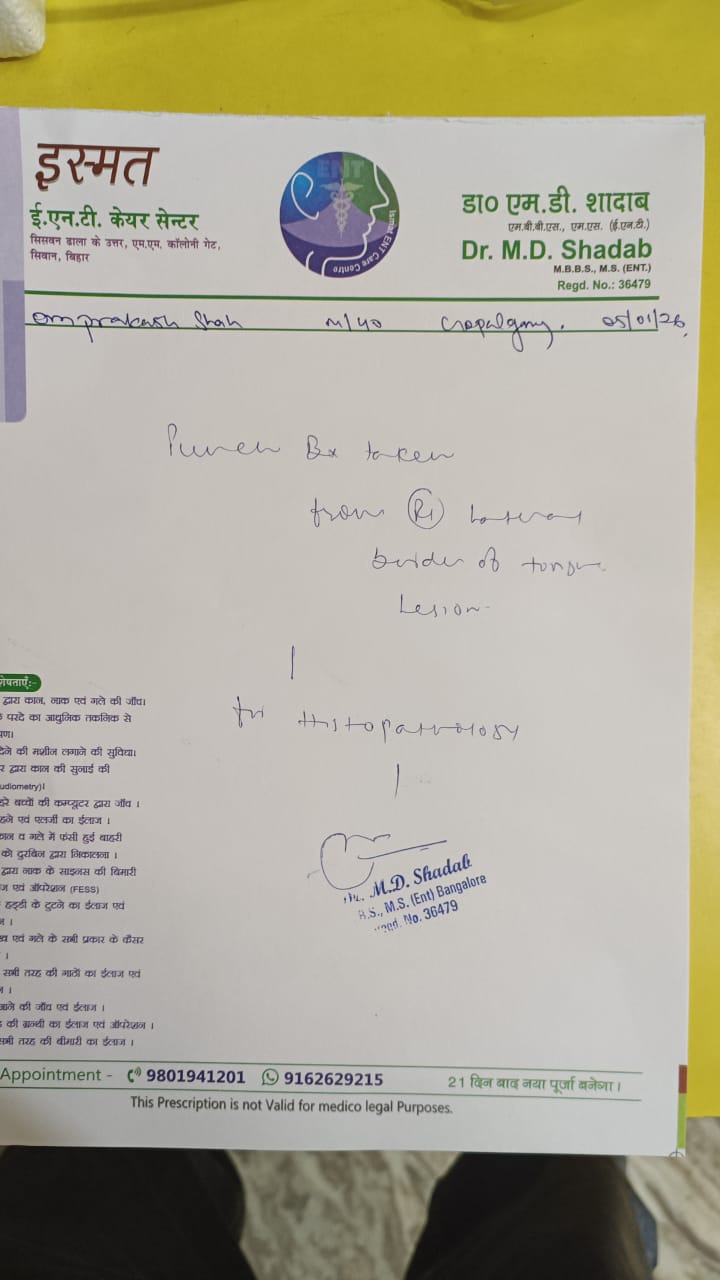 इस्मत
ई.एन.टी. केयर सेन्टर
सिसवन ढाला के उत्तर, एम.एम. कॉलोनी गेट,
सिवान, बिहार
ENT
Ismat ENT Care Centre
डा० एम.डी. शादाब
एम.बी.बी.एस., एम.एस. (ई.एन.टी.)
Dr. M.D. Shadab
M.B.B.S., M.S. (ENT.)
Regd. No.: 36479
omprakash Shah m/40 Gopalganj. 05/01/26
Punch Bx taken
from Rt lateral
border of tongue
Lesion
for Histopathology
M.D. Shadab
B.S., M.S. (Ent) Bangalore
No. 36479
शेषताएँ:-
द्वारा कान, नाक एवं गले की जाँच।
परदे का आधुनिक तकनिक से
देने की मशीन लगाने की सुविधा।
द्वारा कान की सुनाई की
udiometry)।
हरे बच्चों की कम्प्यूटर द्वारा जाँच ।
एवं एलर्जी का ईलाज ।
कान व गले में फंसी हुई बाहरी
को दुरबिन द्वारा निकालना ।
द्वारा नाक के साइनस की बिमारी
एवं ऑपरेशन (FESS)
हड्डी के टुटने का ईलाज एवं
एवं गले के सभी प्रकार के कैंसर
सभी तरह की गाठों का ईलाज एवं
की जाँच एवं ईलाज ।
की ग्रन्थी का ईलाज एवं ऑपरेशन ।
सभी तरह की बीमारी का ईलाज ।
Appointment - 9801941201 9162629215 21 दिन बाद नया पूर्जा बनेगा।
This Prescription is not Valid for medico legal Purposes.